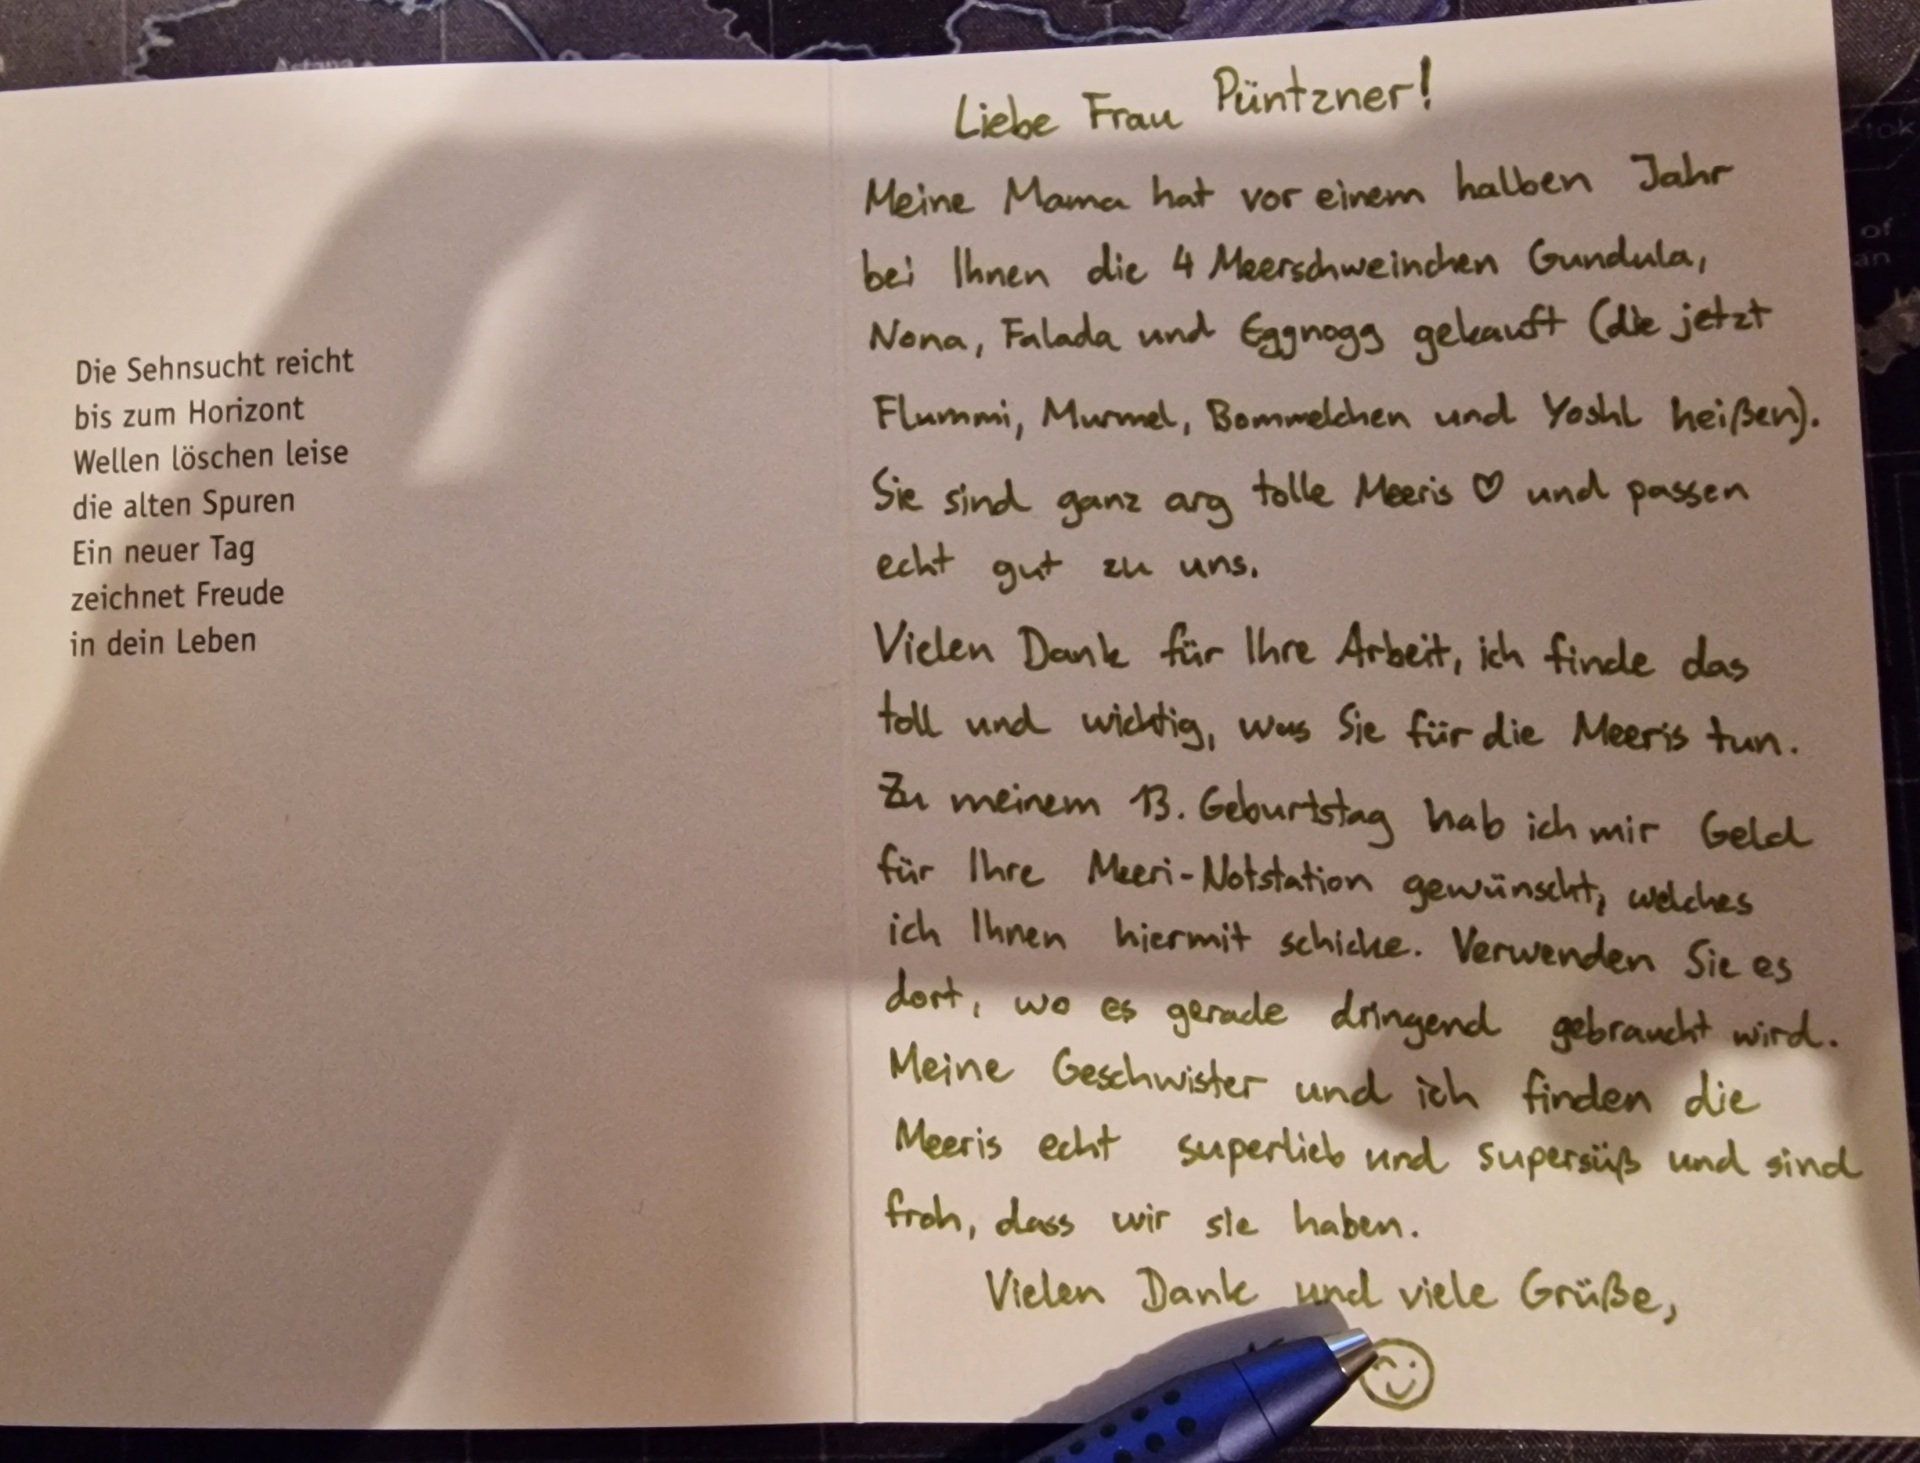 Astana
Die Sehnsucht reicht
bis zum Horizont
Wellen löschen leise
die alten Spuren
Ein neuer Tag
zeichnet Freude
in dein Leben
Liebe Frau Püntzner!
Meine Mama hat vor einem halben Jahr
bei Ihnen die 4 Meerschweinchen Gundula,
Nona, Falada und Eggnogg gekauft (die jetzt
Flummi, Murmel, Bommelchen und Yoshi heißen).
Sie sind ganz arg tolle Meeris ♡ und passen
echt gut zu uns.
Vielen Dank für Ihre Arbeit, ich finde das
toll und wichtig, was Sie für die Meeris tun.
Zu meinem 13. Geburtstag hab ich mir Geld
für Ihre Meeri-Notstation gewünscht, welches
ich Ihnen hiermit schicke. Verwenden Sie es
dort, wo es gerade dringend gebraucht wird.
Meine Geschwister und ich finden die
Meeris echt superlieb und supersüß und sind
froh, dass wir sie haben.
Vielen Dank und viele Grüße,
of